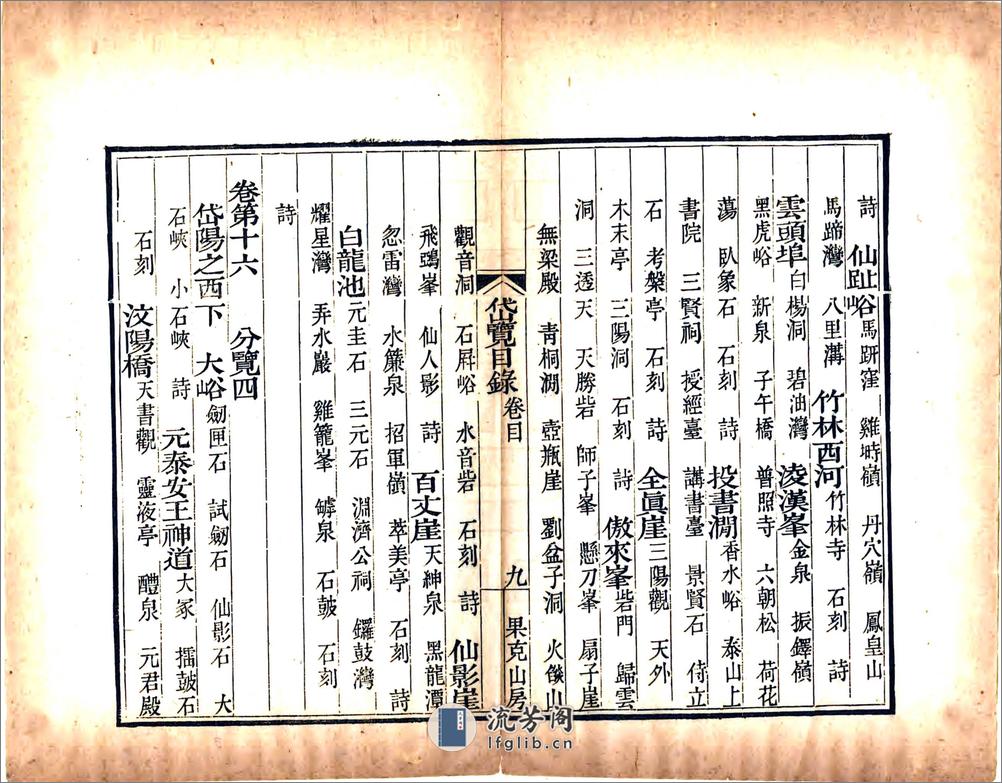 詩　仙趾峪馬趼窪　雞塒嶺　丹穴嶺　鳳皇山
馬蹄灣　八里溝　竹林西河竹林寺　石刻　詩
雲頭埠白楊洞　碧油灣　凌漢峯金泉　振鐸嶺
黑虎峪　新泉　子午橋　普照寺　六朝松　荷花
蕩　臥象石　石刻　詩　投書澗香水峪　泰山上
書院　三賢祠　授經臺　講書臺　景賢石　侍立
石　考槃亭　石刻　詩　全眞崖三陽觀　天外
木末亭　三陽洞　石刻　詩　傲來峯砦門　歸雲
洞　三透天　天勝砦　師子峯　懸刀峯　扇子崖
無梁殿　靑桐澗　壺瓶崖　劉盆子洞　火燄山
岱覽目錄　卷目　九　果克山房
觀音洞　石屛峪　水音砦　石刻　詩　仙影崖
飛鴉峯　仙人影　詩　百丈崖天紳泉　黑龍潭
忽雷灣　水簾泉　招軍嶺　萃美亭　石刻　詩
白龍池元圭石　三元石　淵濟公祠　鑼鼓灣
耀星灣　弄水巖　雞籠峯　罅泉　石皷　石刻
詩
卷第十六　分覽四
岱陽之西下　大峪劒匣石　試劒石　仙影石　大
石峽　小石峽　詩　元泰安王神道大冢　擂皷石
石刻　汶陽橋天書觀　靈液亭　醴泉　元君殿
流芳阁
lfglib.cn